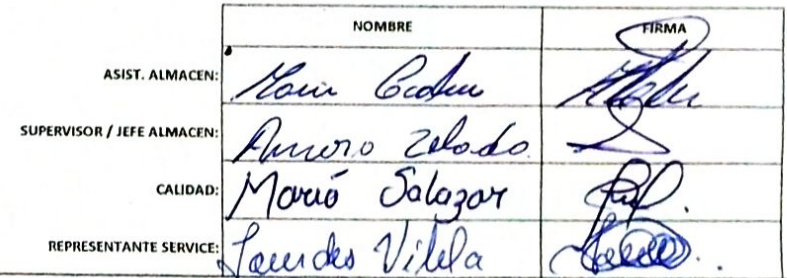 NOMBRE FIRMA
ASIST. ALMACEN: Maria
SUPERVISOR / JEFE ALMACEN: Arturo Zelada
CALIDAD: Mario Salazar
REPRESENTANTE SERVICE: Lourdes Vilela